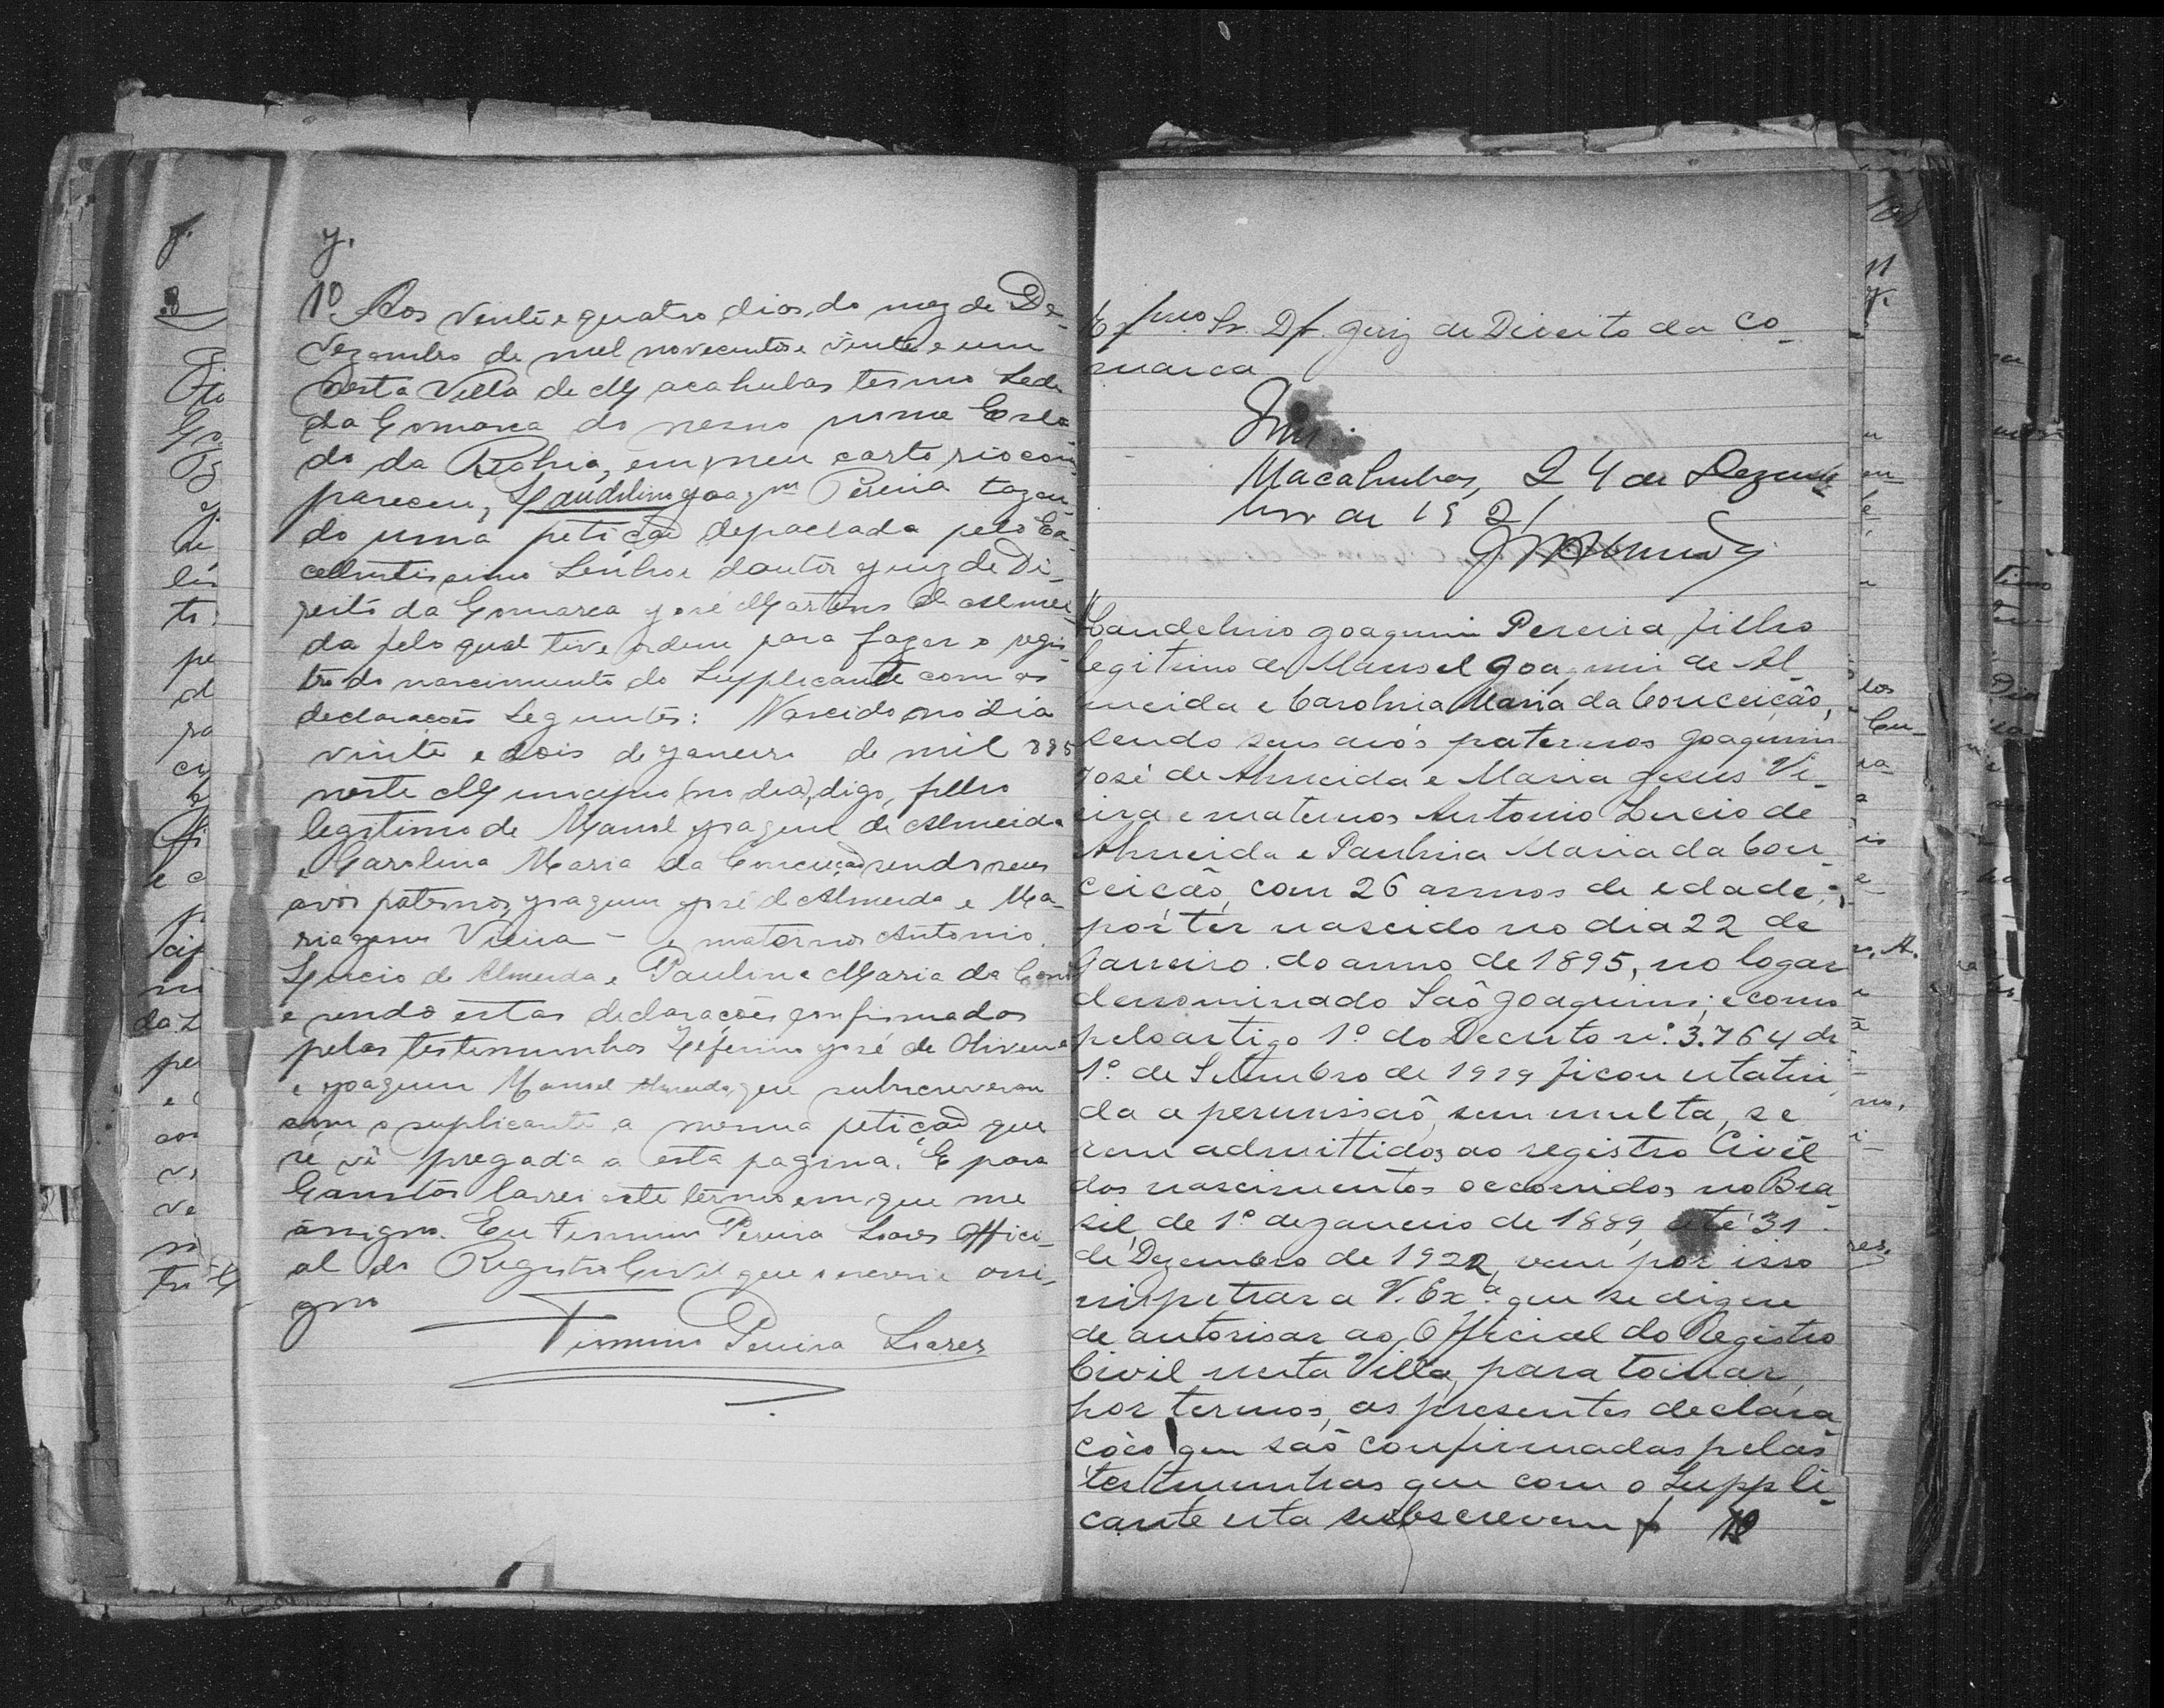 7.
1º Aos vinte e quatro dias do mez de De-
zembro de mil novecentos e vinte e um
nesta Villa de Macahubas termo Sede
da Comarca do mesmo nome Esta-
do da Bahia, em meu cartorio com
pareceu, Laudelino Joaqm Pereira tragen-
do uma petição depachada pelo Ex-
cellentissimo Senhor doutor Juiz de Di-
reito da Comarca José Martins de Almei-
da pelo qual tive ordem para fazer o regis-
tro do nascimento do Supplicante com as
declarações Seguintes: Nascido no dia
vinte e dois de Janeiro de mil 895
neste Municipio (no dia), digo, filho
legitimo de Manoel Joaquim de Almeida
e Carolina Maria da Conceição sendo seus
avós paternos, Joaquim José de Almeida e Ma-
ria Jesus Vieira - e maternos Antonio
Lucio de Almeida e Paulina Maria da Con
e sendo estas declarações confirmadas
pelas testemunhas Zeferino José de Oliveira
e Joaquim Manoel Almeida, que subscreveram
com o suplicante a mesma petição que
se vê pregada a esta pagina. E para
Constar lavrei este termo em que me
assigno. Eu Firmino Pereira Soares Offici-
al do Registro Civil que escrevi e assi-
gno
Firmino Pereira Soares
Exmo. Sr. Dr. Juiz de Direito da Co-
marca
Macahubas, 24 de Dezem
bro de 1921
J M Almeida
Laudelino Joaquim Pereira, filho
legitimo de Manoel Joaquim de Al-
meida e Carolina Maria da Conceição,
sendo seus avós paternos Joaquim
José de Almeida e Maria Jesus Vi-
eira e maternos Antonio Lucio de
Almeida e Paulina Maria da Con-
ceição, com 26 annos de edade,
por ter nascido no dia 22 de
Janeiro do anno de 1895, no logar
denominado São Joaquim; e como
pelo artigo 1º do Decreto nº. 3.764 de
1º. de Setembro de 1919 ficou estatui
da a permissão, sem multa, se
rem admittidos ao registro Civil
dos nascimentos occorridos no Bra
sil, de 1º de Janeiro de 1889, até 31
de Dezembro de 1922, vem por isso
impetrar a V. Exa. que se digne
de autorisar ao Official do Registro
Civil nesta Villa, para tomar,
por termos, as presentes declara
ções que são confirmadas pelas
testemunhas que com o Suppli-
cante esta subscrevem